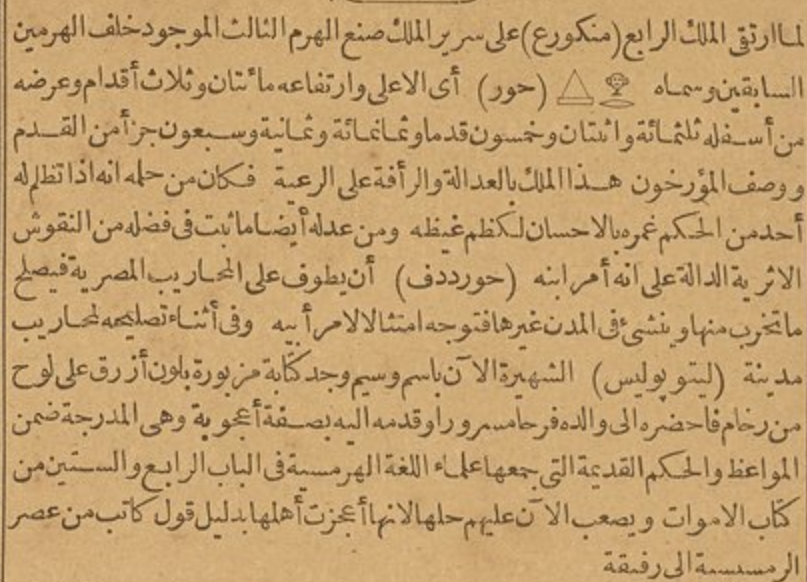 لما ارتقى الملك الرابع (منكورع) على سرير الملك صنع الهرم الثالث الموجود خلف الهرمين
السابقين وسماه (حور) أى الاعلى وارتفاعه مائتان وثلاث أقدام وعرضه
من أسفله ثلثمائة واثنتان وخمسون قدما وثمانمائة وثمانية وسبعون جزأ من القدم
ووصف المؤرخون هذا الملك بالعدالة والرأفة على الرعية فكان من حلمه انه اذا تظلم له
أحد من الحكم غمره بالاحسان لكظم غيظه ومن عدله أيضا ما ثبت فى فضله من النقوش
الاثرية الدالة على انه أمر ابنه (حورددف) أن يطوف على المحاريب المصرية فيصلح
ما تخرب منها وينشئ فى المدن غيرها فتوجه امتثالا لامر أبيه وفى أثناء تصليحه لمحاريب
مدينة (ليتوپوليس) الشهيرة الآن باسم وسيم وجد كتابة مزبورة بلون أزرق على لوح
من رخام فاحضره الى والده فرحا مسرورا وقدمه اليه بصفة أعجوبة وهى المدرجة ضمن
المواعظ والحكم القديمة التى جمعها علماء اللغة الهرمسية فى الباب الرابع والستين من
كتاب الاموات ويصعب الآن عليهم حلها لانها أعجزت أهلها بدليل قول كاتب من عصر
الرمسسية الى رفيقة